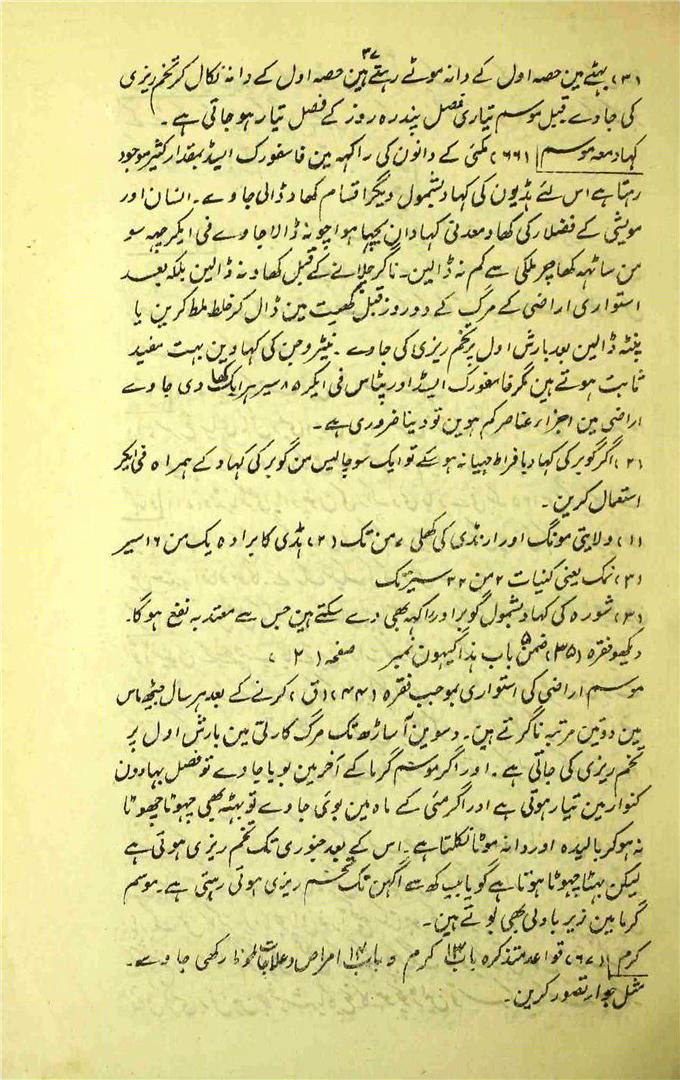 ۳۷
(۳) بہٹے مین حصہ اول کے دانہ موٹے رہتے ہین حصہ اول کے دانہ نکال کر تخم ریزی
کی جاوے قبل موسم تیاری فصل پندرہ روز کے فصل تیار ہو جاتی ہے ۔
کہاد معہ موسم (۶۶) مکئی کے دانون کی راکہہ مین فاسفورک ایسڈ بمقدار کثیر موجود
رہتا ہے اس لئے ہڈیون کی کہاد بشمول دیگر اقسام کھاد ڈالی جاوے ۔ انسان اور
مویشی کے فضلہ کی کھاد معدنی کہادان بجہا ہوا چونہ ڈالا جاوے فی ایکر چہہ سو
من ساٹہہ کھاچر ملکی سے کم نہ ڈالین ۔ ناگر چلانے کے قبل کھاد نہ ڈالین بلکہ بعد
استواری اراضی کے مرگ کے دو روز قبل کھیت مین ڈال کر خلط ملط کرین یا
پٹہ ڈالین بعد بارش اول پر تخم ریزی کی جاوے ۔ نیٹروجن کی کہادین بہت مفید
ثابت ہوتے ہین مگر فاسفورک ایسڈ اور پٹاس فی ایکر ۸۵ سیر ہر ایک کھاد دی جاوے
اراضی مین اجزاء عناصر کم ہوین تو دینا ضروری ہے ۔
(۲) اگر گوبر کی کہاد با فراط مہیا نہ ہو سکے تو ایک سو چالیس من گوبر کی کہاد کے ہمراہ فی ایکر
استعمال کرین ۔
(۱) ولایتی مونگ اور ارنڈی کی کھلی ۷ من تک (۲) ہڈی کا برادہ یک من ۱۶ سیر
(۳) نمک یعنی کنیات ۲ من ۳۲ سیر تک
(۳) شورہ کی کہاد بشمول گوبر اور راکہہ بھی دے سکتے ہین جس سے معتد بہ نفع ہو گا ۔
دیکھو فقرہ (۳۵) ضمن ۵ باب ہذا گیہون نمبر صفحہ (۲ )
موسم اراضی کی استواری بموجب فقرہ (۴۴) (ق) کرنے کے بعد ہر سال جیٹھ ماس
مین دو تین مرتبہ ناگرتے ہین ۔ دسوین آساڑھ تک مرگ کارتی مین بارش اول پر
تخم ریزی کی جاتی ہے ۔ اور اگر موسم گرما کے آخر مین بویا جاوے تو فصل بہادون
کنوار مین تیار ہوتی ہے اور اگر مئی کے ماہ مین بوئی جاوے تو بہٹہ بھی چہوٹا چھوٹا
نہ ہو کر بالیدہ اور دانہ موٹا نکلتا ہے ۔ اس کے بعد جنوری تک تخم ریزی ہوتی ہے
لیکن بہٹا چہوٹا ہوتا ہے گویا بیساکھ سے اگہن تک تخم ریزی ہوتی رہتی ہے ۔ موسم
گرما مین زیر باولی بھی بوتے ہین ۔
کرم (۶۷) قواعد متذکرہ باب کرم و باب امراض و علاجات ملحوظ رکھی جاوے ۔
مثل جوار تصور کرین ۔